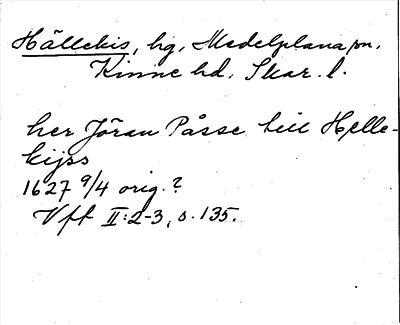 Hällekis, hg, Medelplana sn,
Kinne hd, Skar. l.
her Jöran Påsse till Helle-
kijss
1627 9/4 orig.?
Vft II:2-3, s. 135.